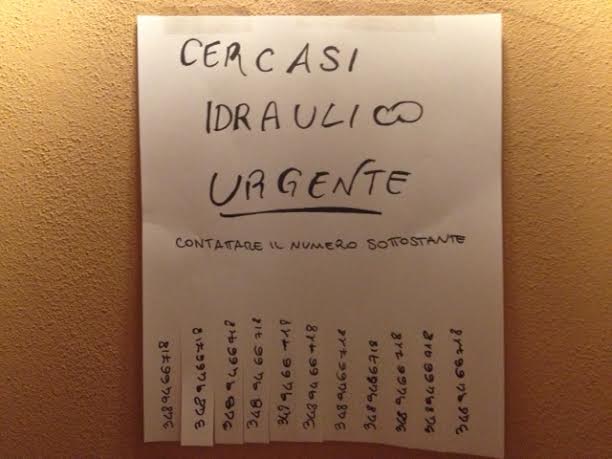 CERCASI
IDRAULICO
URGENTE
CONTATTARE IL NUMERO SOTTOSTANTE
3489466718
3489466718
3489466718
3489466718
3489466718
3489466718
3489466718
3489466718
3489466718
3489466718
3489466718